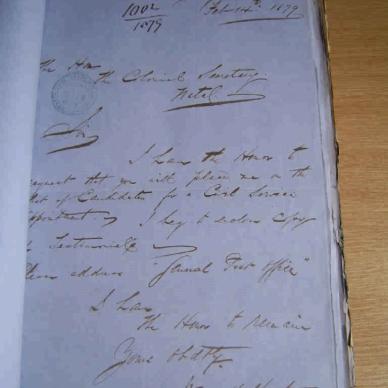 1002
1879
Feb 14th 1879
The Hon
The Colonial Secretary
Natal
Sir
I have the Honor to
request that you will place me on the
list of Candidates for a Civil Service
appointment, I beg to enclose copy
Testimonials
Please address "General Post Office"
I have
the Honor to remain
Yours Obdtly